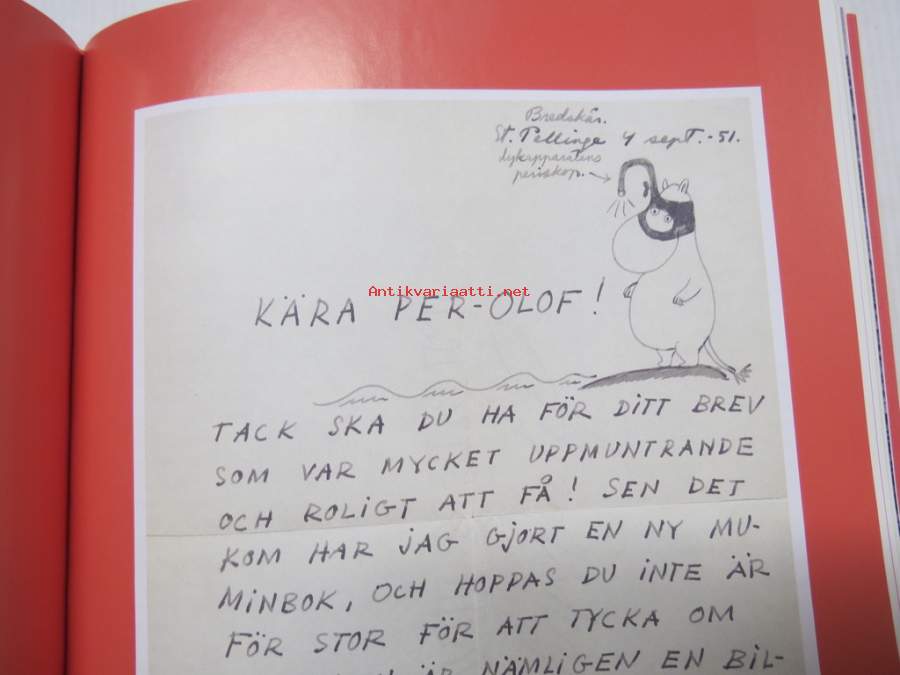 Bredskär.
St. Pellinge 4 sept. -51.
dykapparatens
periskop.
KÄRA PER-OLOF!
Antikvariaatti.net
TACK SKA DU HA FÖR DITT BREV
SOM VAR MYCKET UPPMUNTRANDE
OCH ROLIGT ATT FÅ! SEN DET
KOM HAR JAG GJORT EN NY MU-
MINBOK, OCH HOPPAS DU INTE ÄR
FÖR STOR FÖR ATT TYCKA OM
ÄR NÄMLIGEN EN BIL-